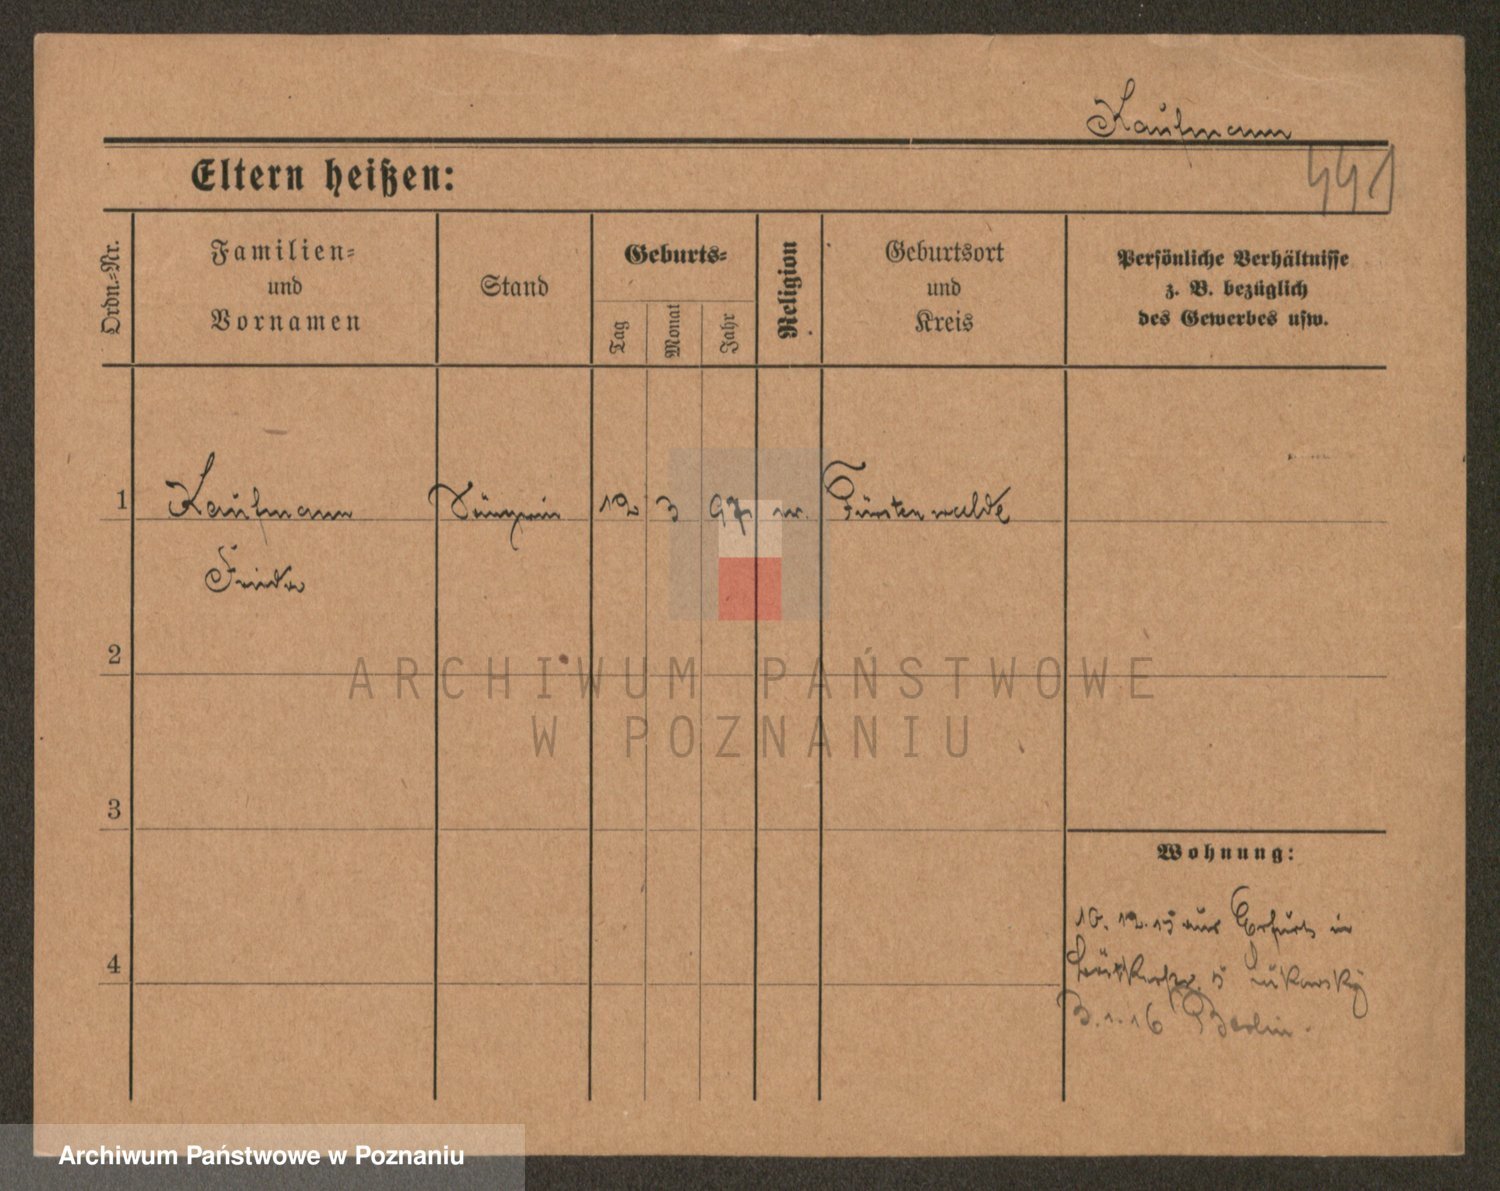 Kaufmann
441
Eltern heißen:
Ordn.=Nr.
Familien=
und
Vornamen
Stand
Geburts=
Tag
Monat
Jahr
Religion
Geburtsort
und
Kreis
Persönliche Verhältnisse
z. B. bezüglich
des Gewerbes usw.
1 Kaufmann Sängerin 12 3 97 Fürstenwalde
Frieda
2
3
4
Wohnung:
10. 12. 15 aus Erfurt in
5
3. 1. 16 Berlin.
ARCHIWUM PAŃSTWOWE
W POZNANIU
Archiwum Państwowe w Poznaniu